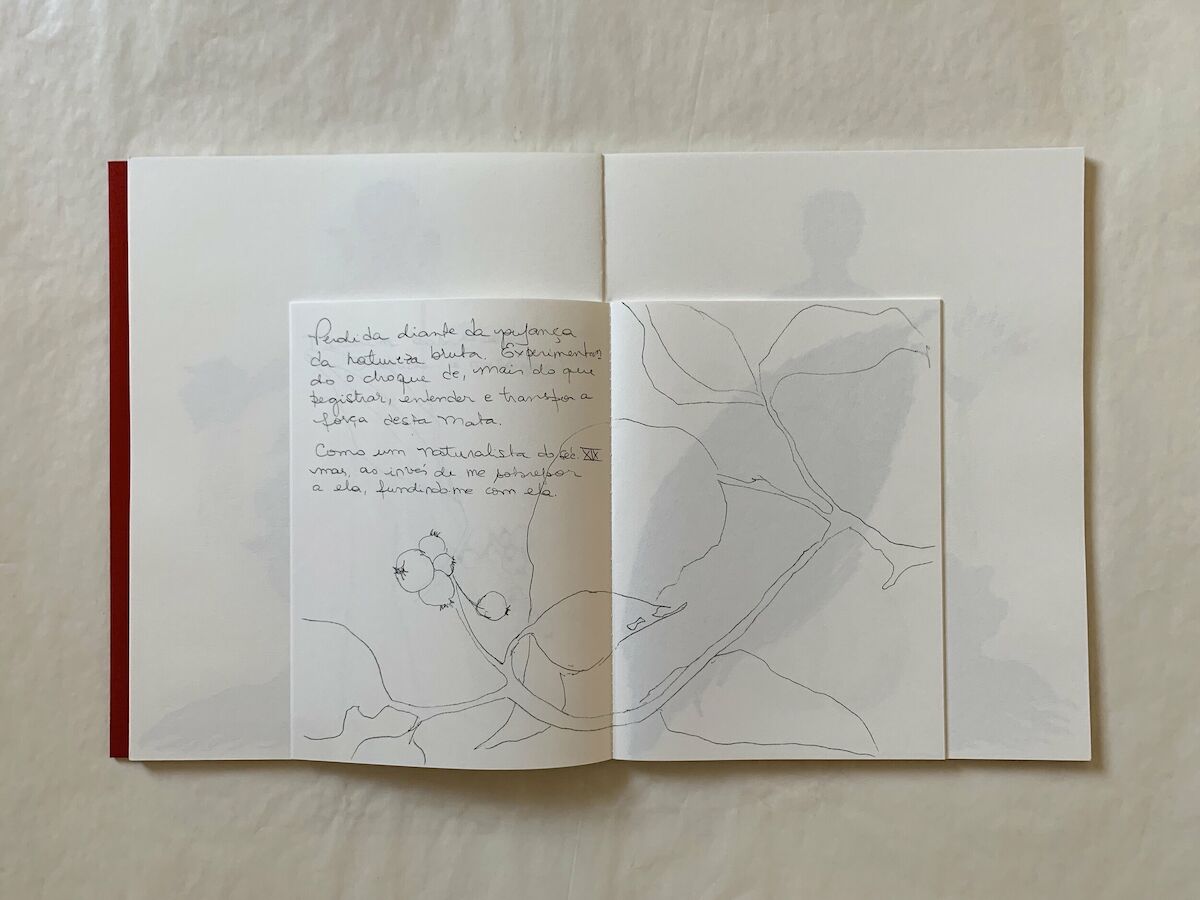 Perdida diante da pujança
da natureza bruta. Experimentan
do o choque de, mais do que
registrar, entender e transpor a
força desta mata.
Como um naturalista do séc. XIX
mas, ao invés de me sobrepor
a ela, fundindo-me com ela.